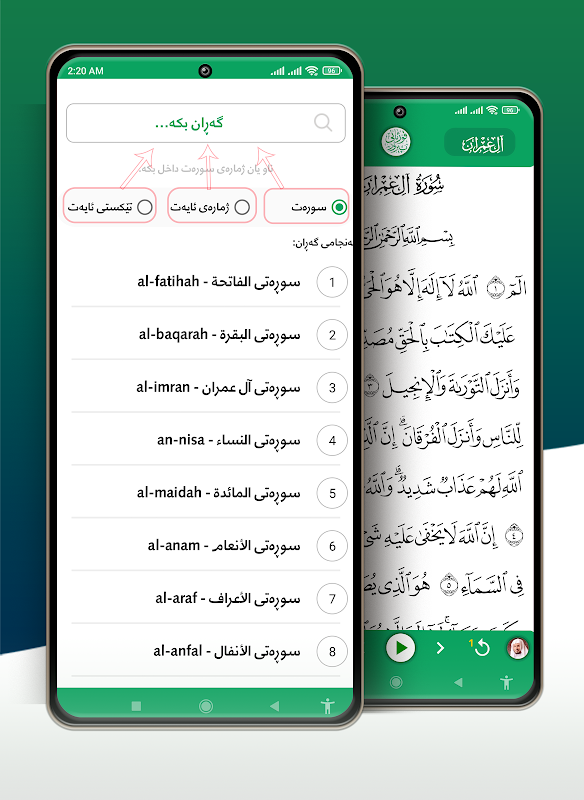 2:20 AM
96
گەڕان بکە...
ناو یان ژمارەی سورەت داخل بکە.
سورەت
ژمارەی ئایەت
تێکستی ئایەت
ەنجامی گەڕان:
1 سوڕەتی الفاتحة - al-fatihah
2 سوڕەتی البقرة - al-baqarah
3 سوڕەتی آل عمران - al-imran
4 سوڕەتی النساء - an-nisa
5 سوڕەتی المائدة - al-maidah
6 سوڕەتی الأنعام - al-anam
7 سوڕەتی الأعراف - al-araf
8 سوڕەتی الأنفال - al-anfal
96
آل عمران
سُورَةُ آلِ عِمْرَان
بِسْمِ ٱللَّهِ ٱلرَّحْمَٰنِ
الٓمٓ ١ ٱللَّهُ لَآ إِلَٰهَ إِلَّا هُوَ ٱلْحَىُّ
عَلَيْكَ ٱلْكِتَٰبَ بِٱلْحَقِّ
وَأَنزَلَ ٱلتَّوْرَىٰةَ وَٱلْإِنجِيلَ ٣
لِّلنَّاسِ وَأَنزَلَ ٱلْفُرْقَانَ ۗ إِنَّ
ٱللَّهِ لَهُمْ عَذَابٌ شَدِيدٌ ۗ وَٱللَّهُ
٤ إِنَّ ٱللَّهَ لَا يَخْفَىٰ عَلَيْهِ
فِى ٱلسَّمَآءِ ٥ هُوَ ٱلَّذِى
1